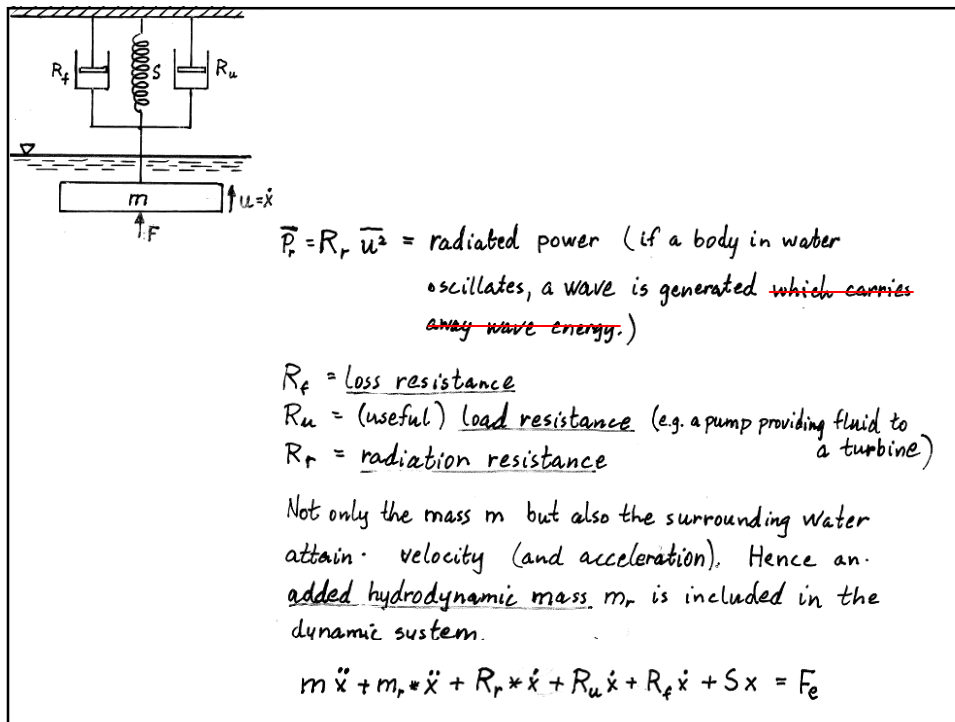 R_f S R_u
m u = ẋ
F
P̅_r = R_r u̅² = radiated power (if a body in water
oscillates, a wave is generated which carries
away wave energy.)
R_f = loss resistance
R_u = (useful) load resistance (e.g. a pump providing fluid to
a turbine)
R_r = radiation resistance
Not only the mass m but also the surrounding water
attain. velocity (and acceleration). Hence an.
added hydrodynamic mass m_r is included in the
dynamic system.
m ẍ + m_r * ẍ + R_r * ẋ + R_u ẋ + R_f ẋ + S x = F_e